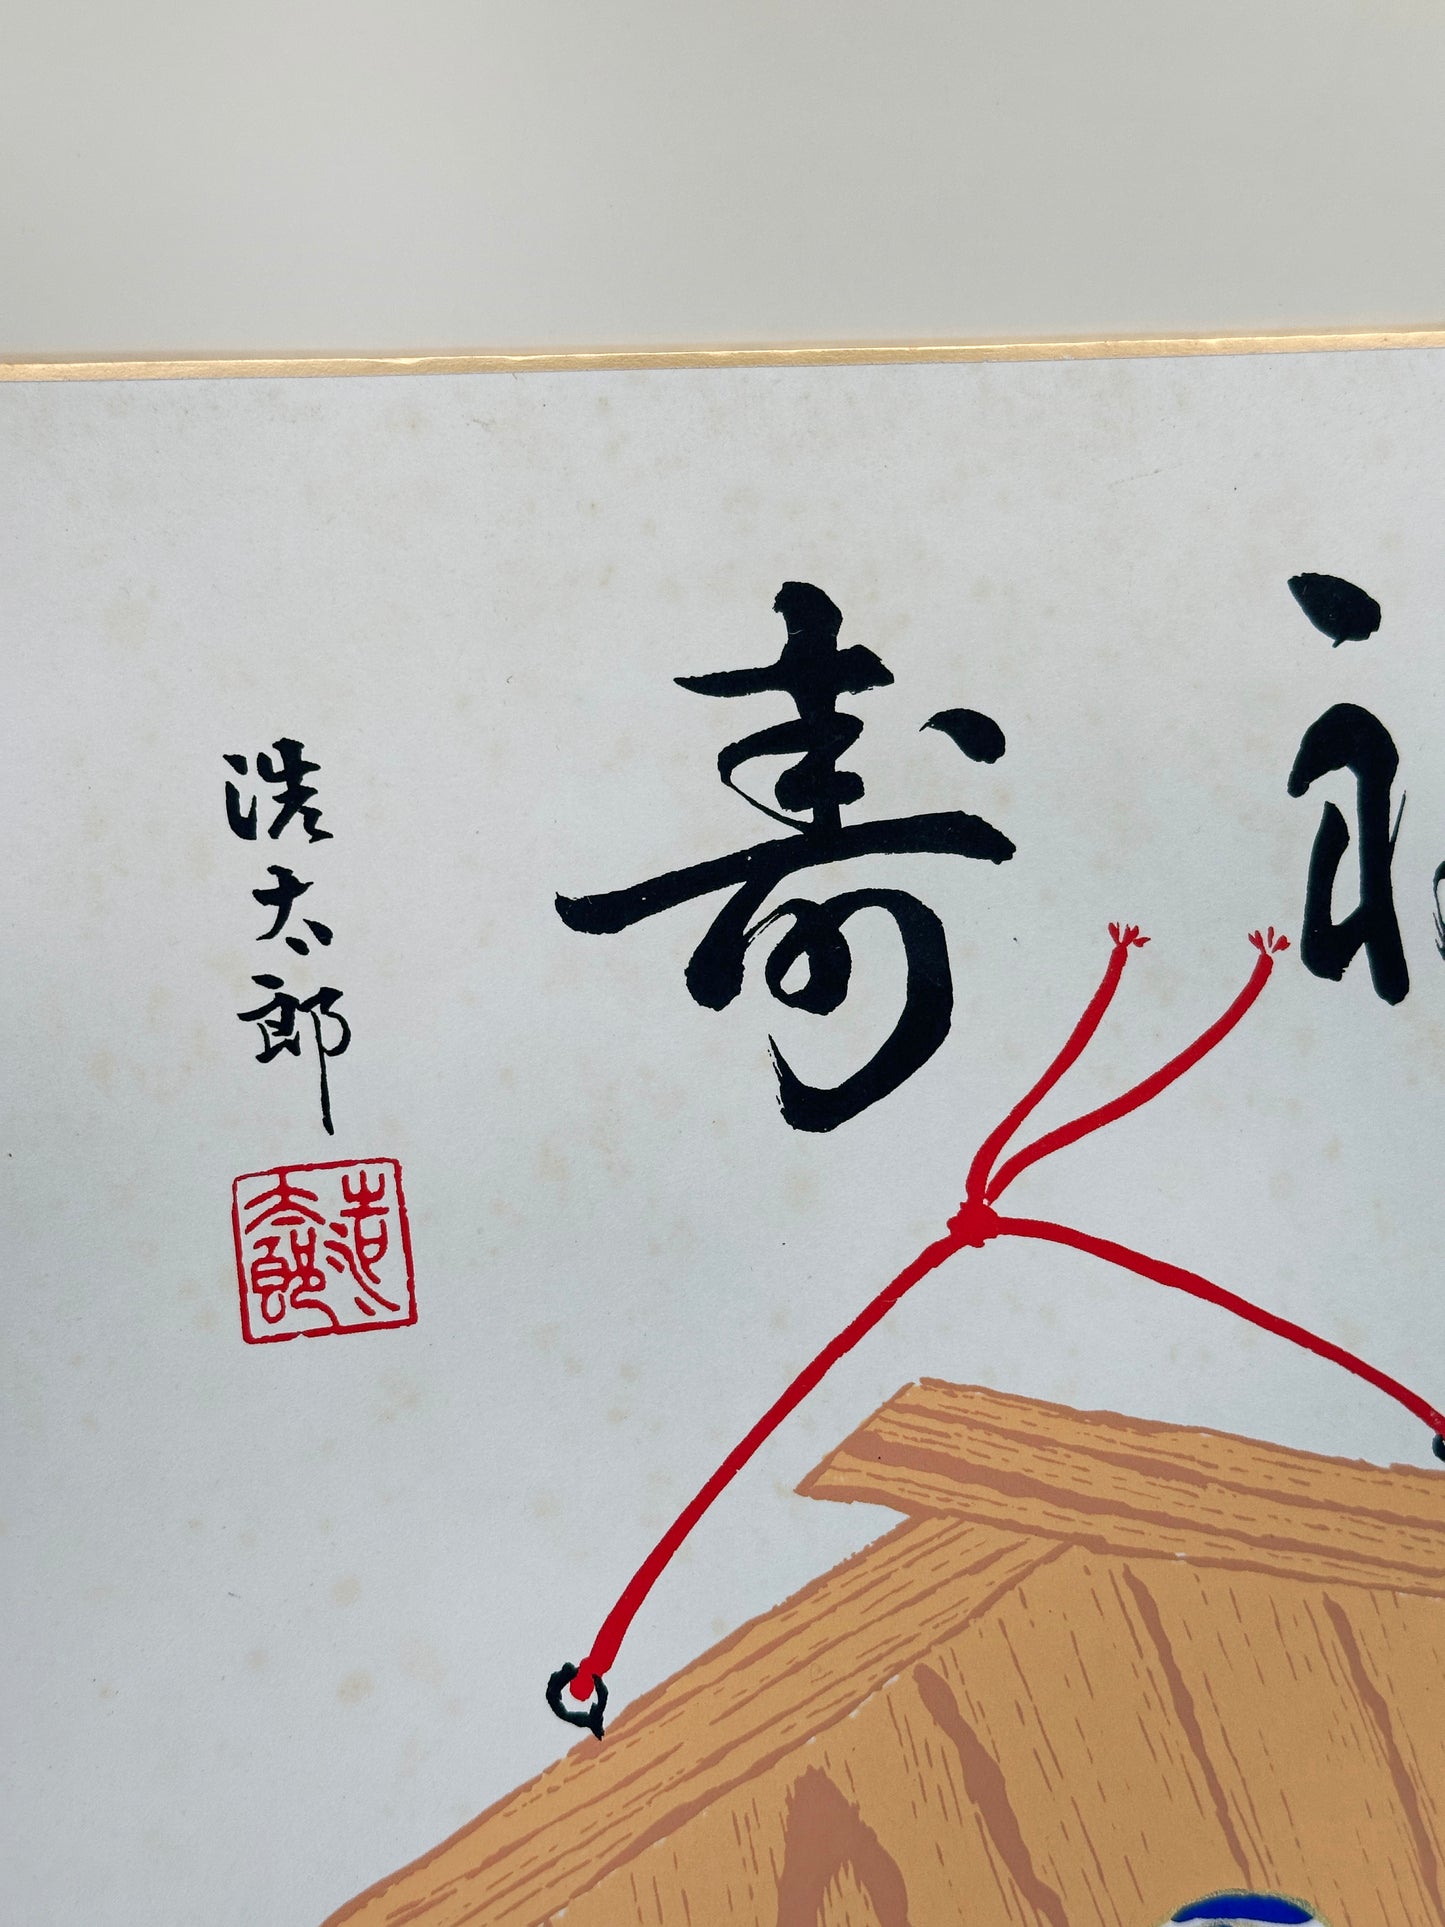 寿
浩太郎
浩太郎